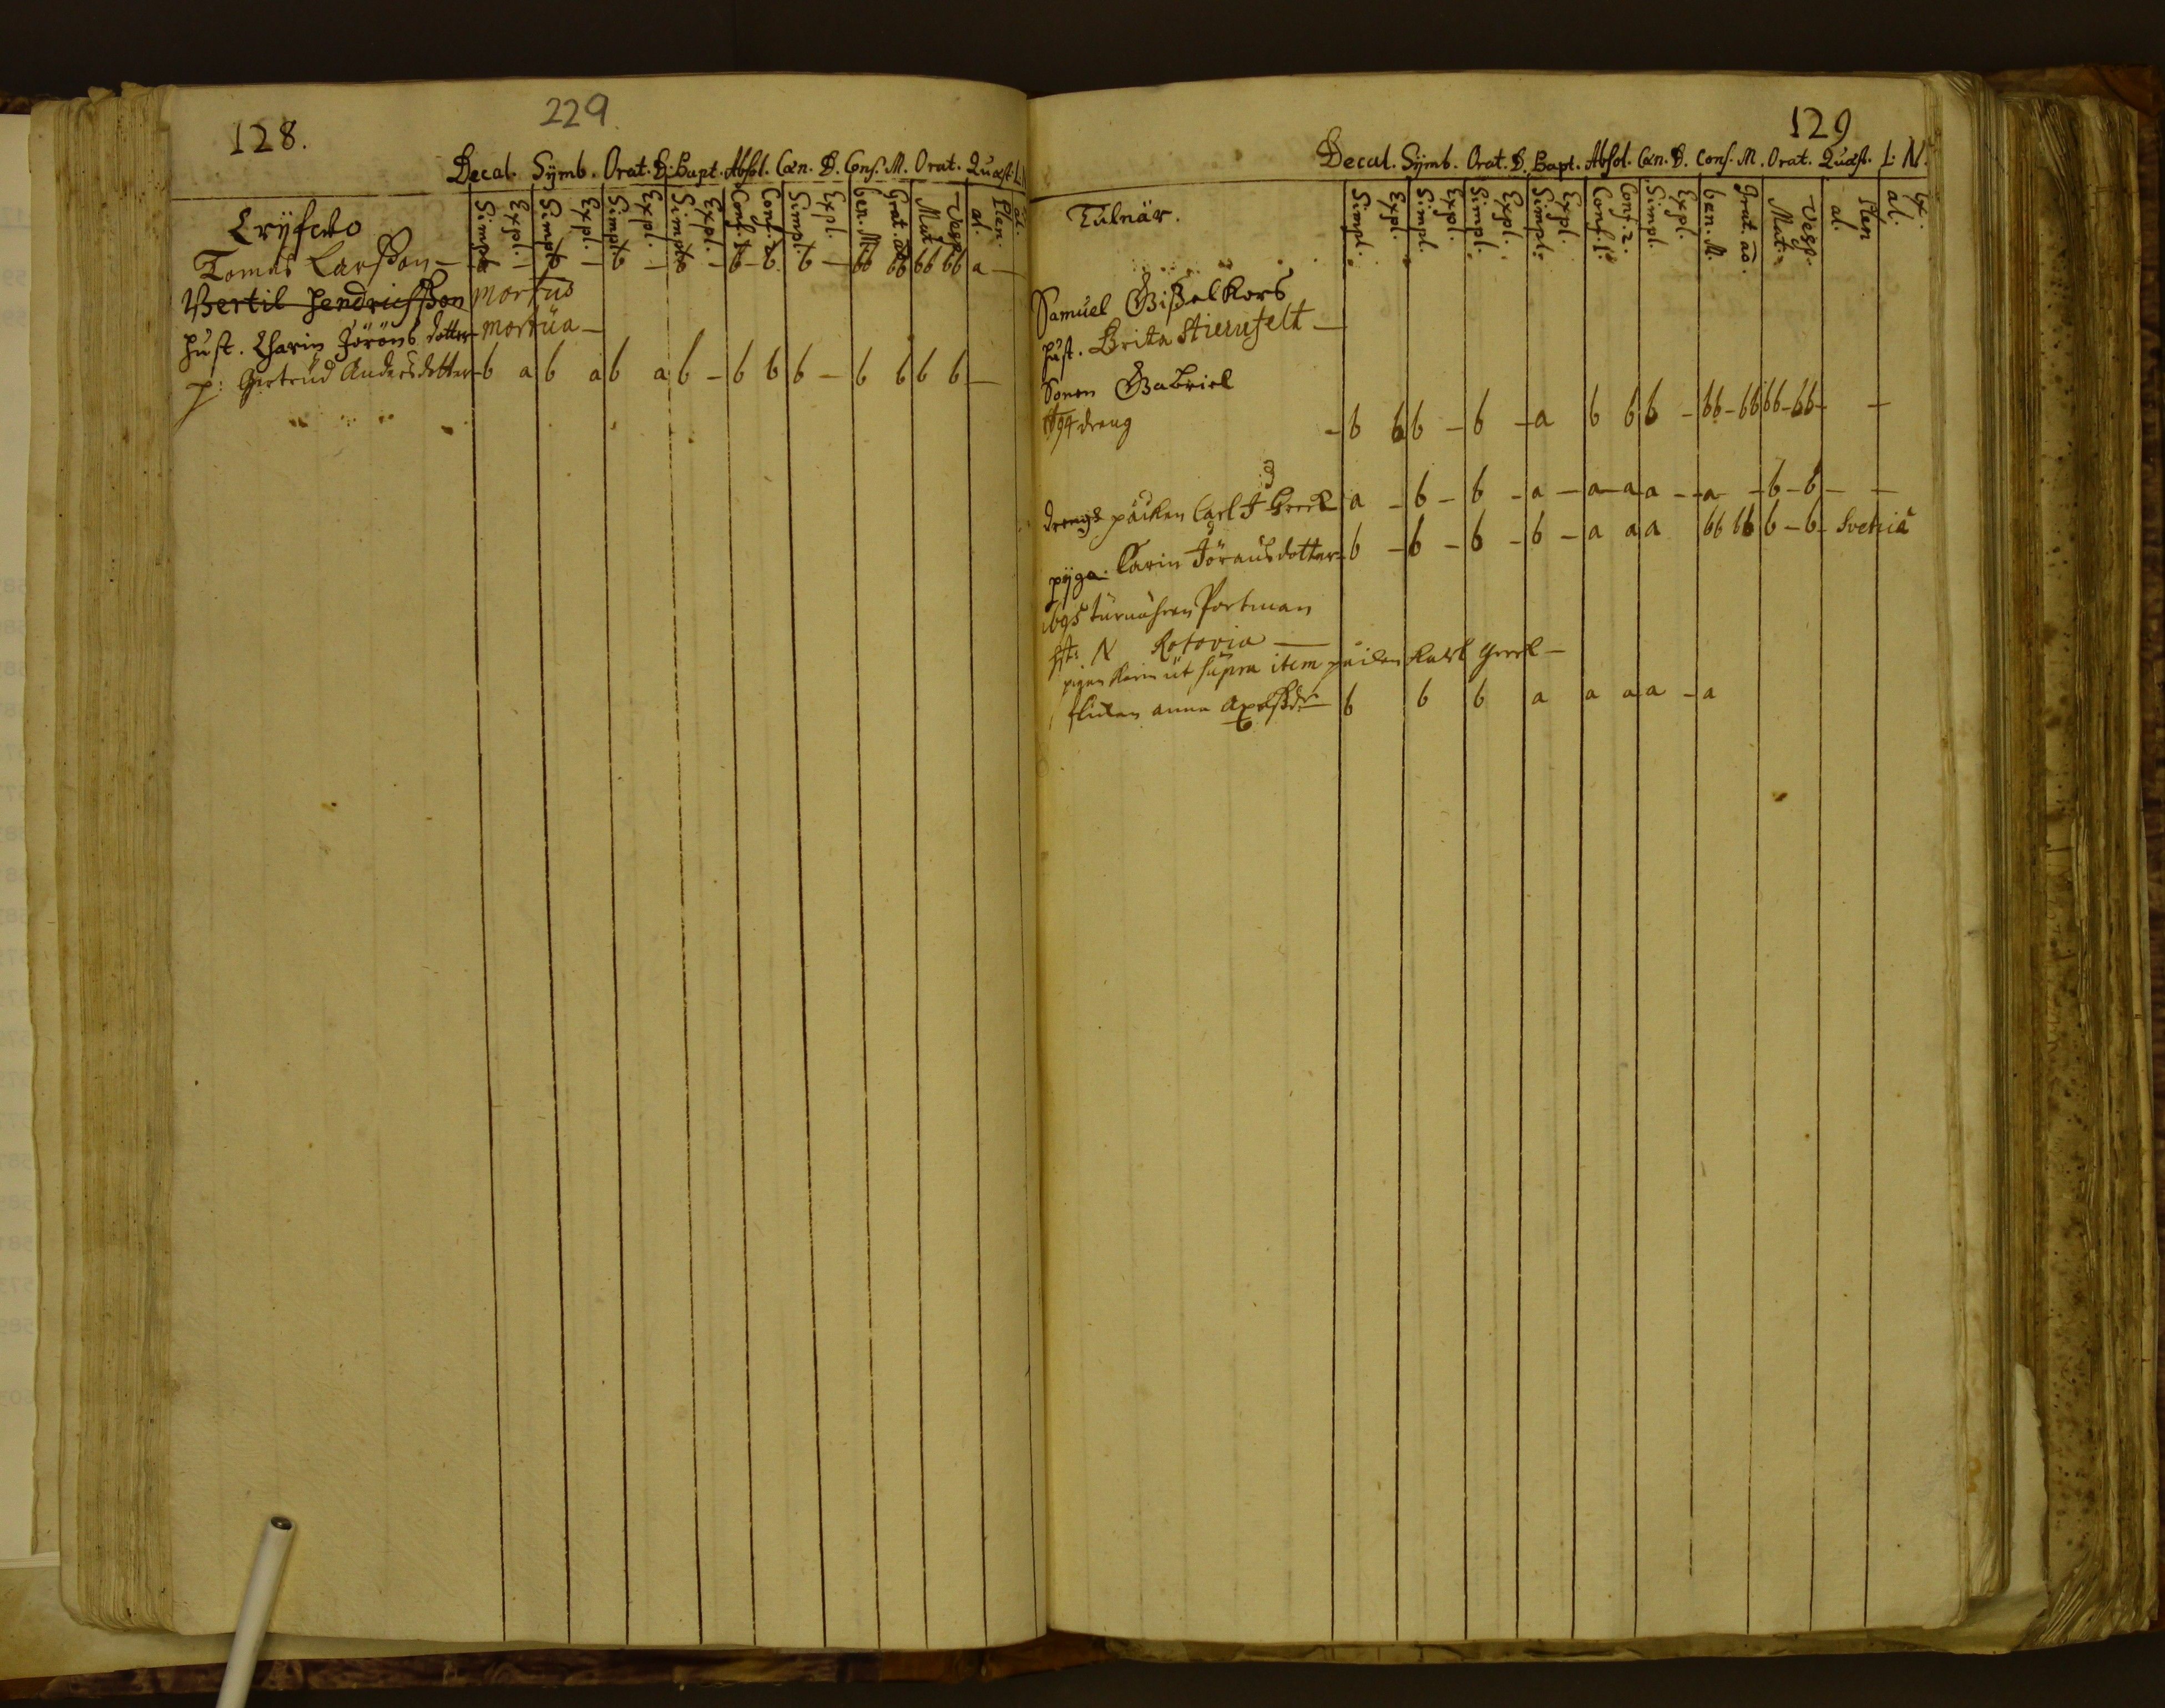 128.
229.
Decal. Symb. Orat. D. Bapt. Absol. Cæn. D. Conf. M. Orat. Quæst. L. N
Simpl. Expl. Simpl. Expl. Simpl. Expl. Simpl. Expl. Conf. 1. Conf. 2. Simpl. Expl. ben. M. Grat. ao. Mat. Vesp. al. Plen. al.
Tomas Larsson — b — b — b — b — b — b b — bb bb bb bb a —
Bertil Hendrichsson mortus
Hust. Charin Jörans dotter mortua —
p: Gertrud Andersdotter b a b a b a b — b b b — b b b b —
129
Decal. Symb. Orat. D. Bapt. Absol. Cæn. D. Conf. M. Orat. Quæst. L. N.
Tulnär.
Simpl. Expl. Simpl. Expl. Simpl. Expl. Simpl. Expl. Conf. 1. Conf. 2. Simpl. Expl. ben. M. Grat. ao. Mat. Vesp. al. plen al.
Samuel Gisselkors
Hust. Brita Stiernfelt —
Sonen Gabriel
dreng — b b b — b — a b b b — bb — bb bb — bb — —
drengs påiken Carl J a — b — b — a — a — a a — a — b — b — —
pyga. Carin Jöransdotter — b — b — b — b — a a a bb bb b — b — Svetziå
1695 Portman
N Rotovia —
pigan Karin ut supra item påiken Karl —
flickan anna b b b a a a a — a